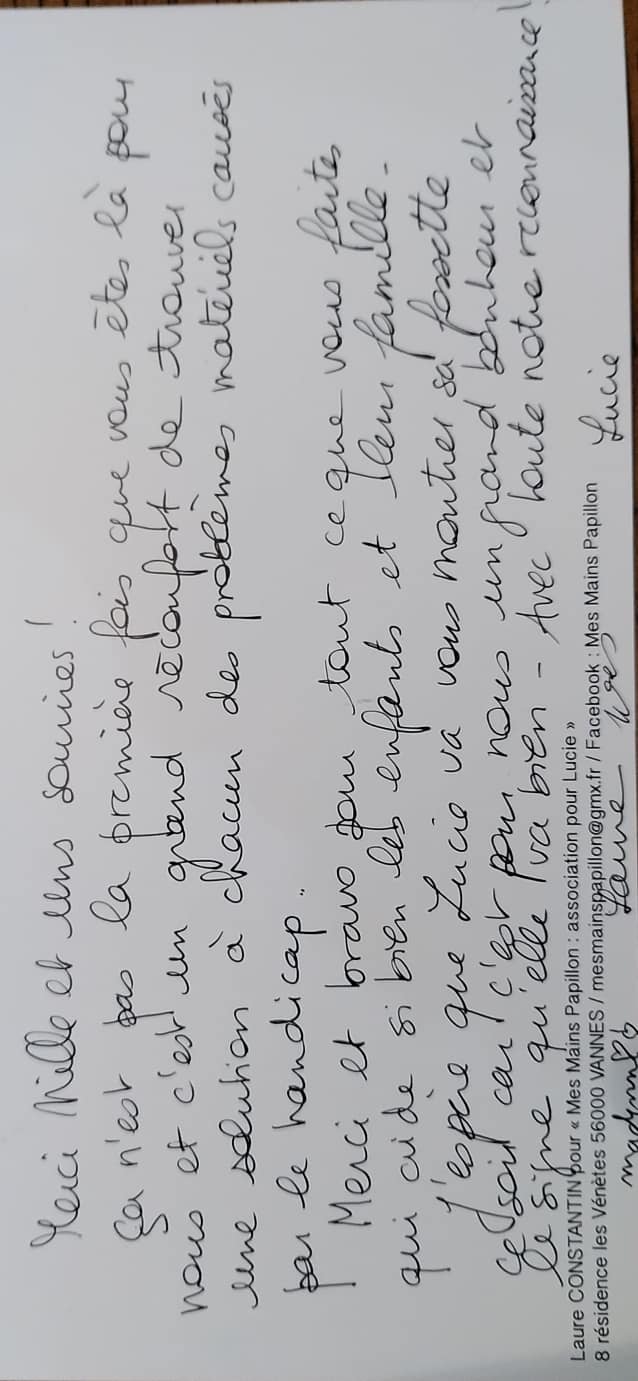 Merci Mille et uns sourires!
Ça n'est pas la première fois que vous êtes là pour
nous et c'est un grand réconfort de trouver
une solution à chacun des problèmes matériels causés
par le handicap..
Merci et bravo pour tout ce que vous faites
qui aide si bien les enfants et leur famille.
J'espère que Lucie va vous montrer sa fossette
ce soir car c'est pour nous un grand bonheur et
le signe qu'elle va bien - Avec toute notre reconnaissance!
Laure CONSTANTIN pour « Mes Mains Papillon : association pour Lucie »
8 résidence les Vénètes 56000 VANNES / mesmainspapillon@gmx.fr / Facebook : Mes Mains Papillon
Laure Lucie